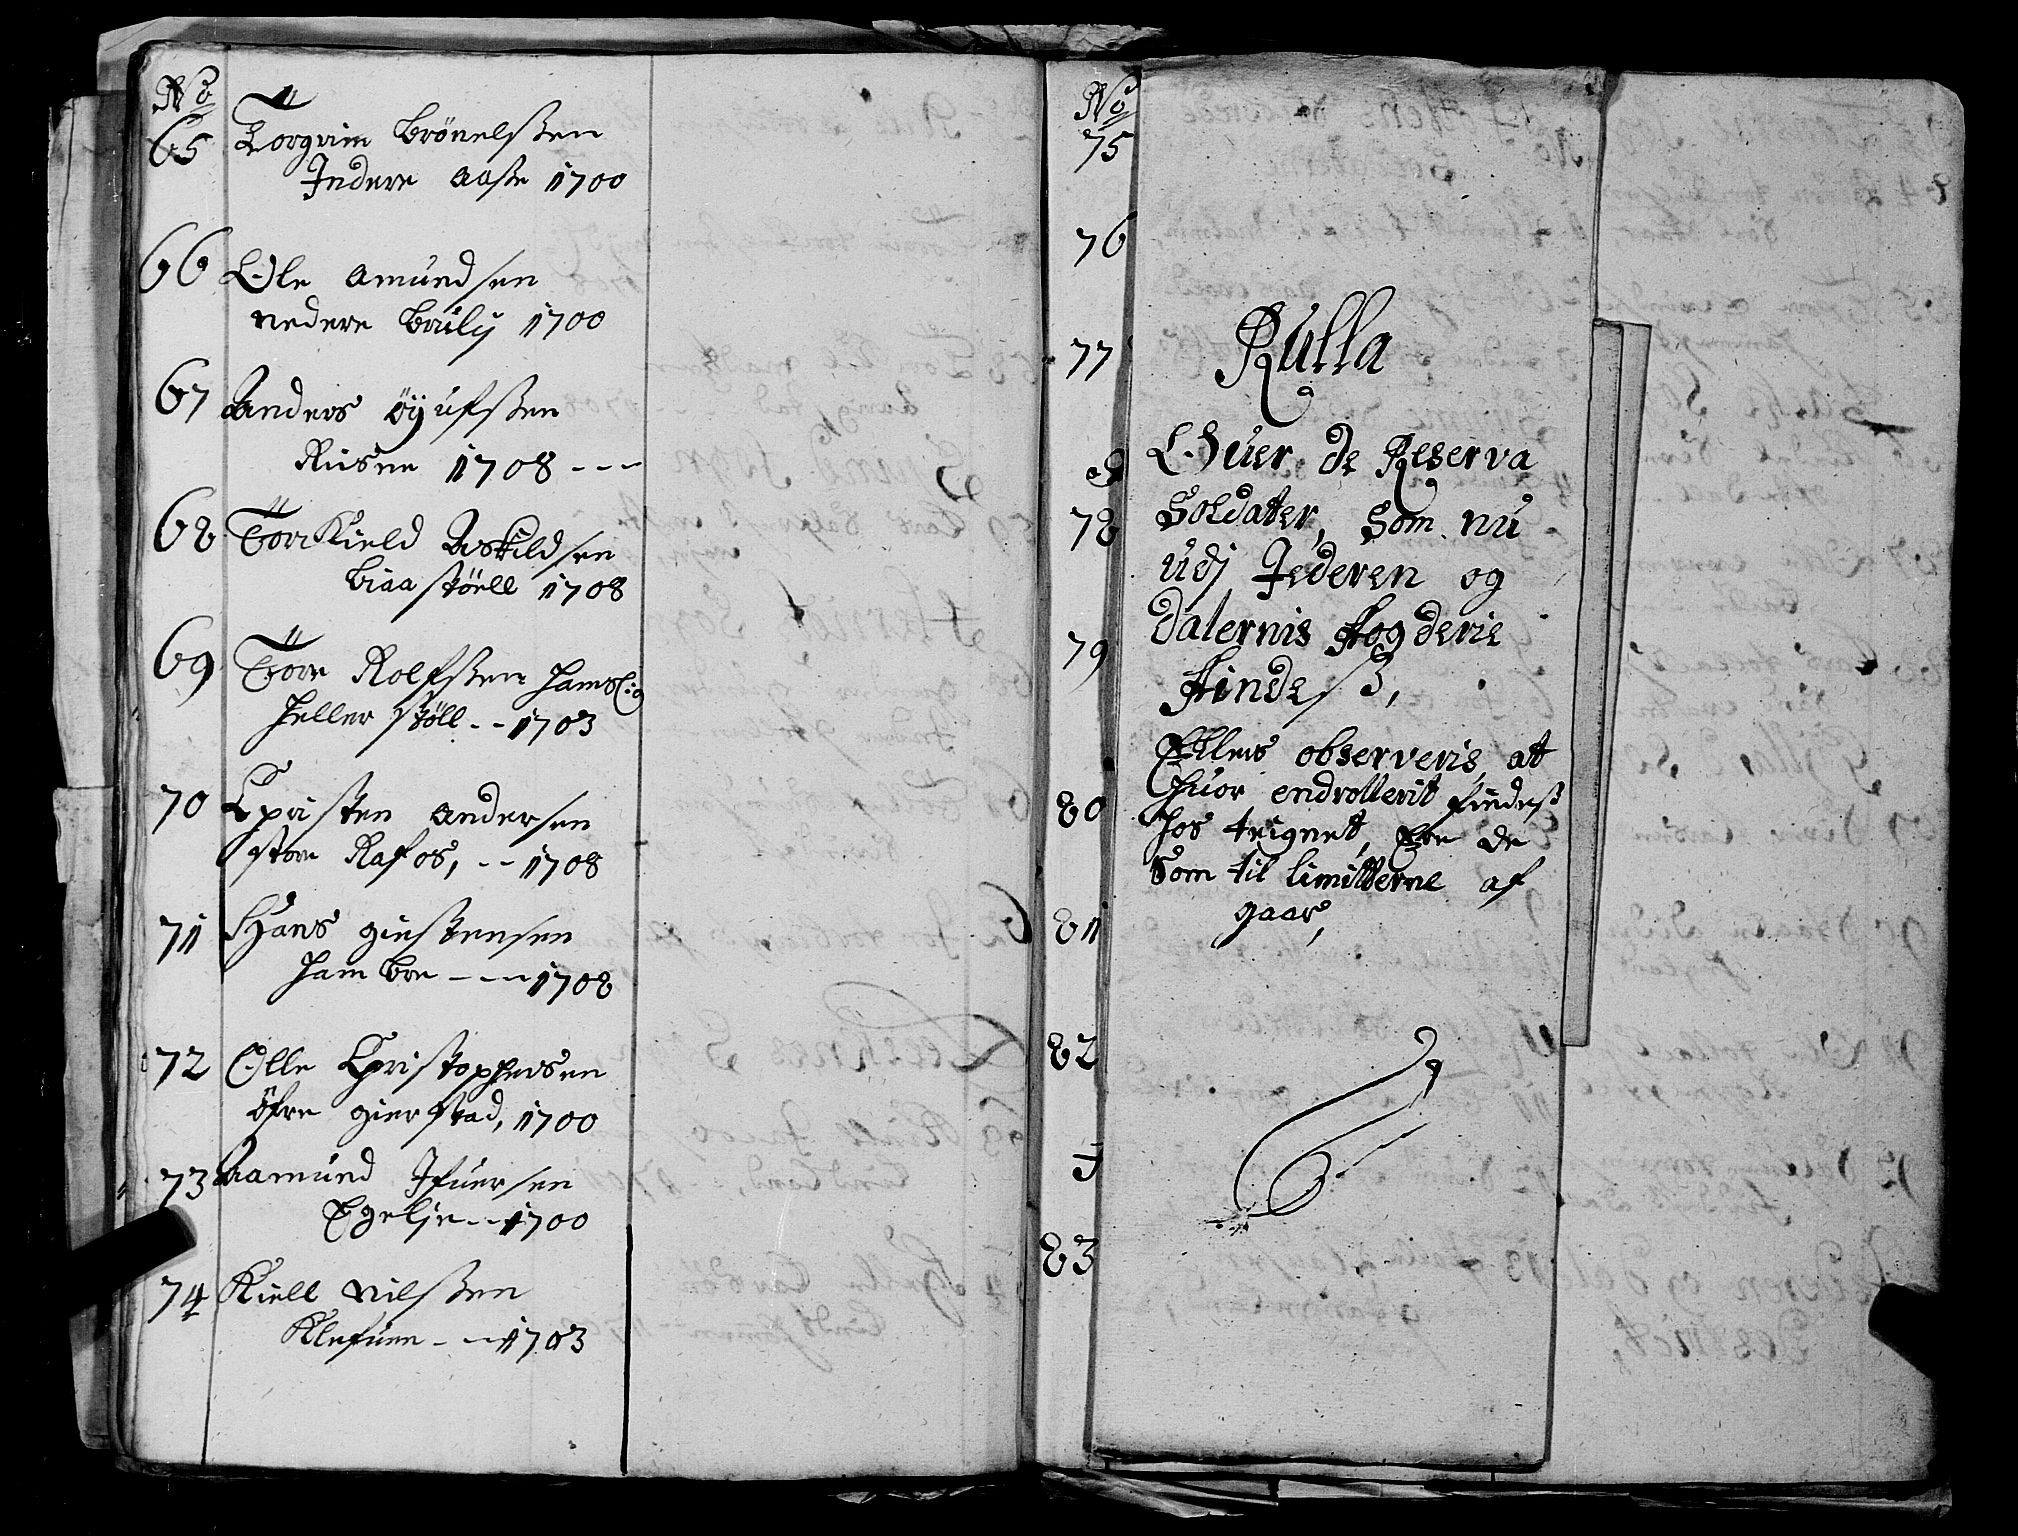 No
65 Torgrim Brönelssen
Indere Aase 1700
66 Ole Amundsen
nedere Bruly 1700
67 Anders Öÿufssen
Riisen 1708 ---
68 Torrkield Askildsen
Liaastöell 1708
69 Torr Rolfssen
Heller Stöll -- 1703
70 Christen Andersen
store Rafos, -- 1708
71 Hans giertensen
Ham Bre --- 1708
72 Olle Christophersen
öfre gierstad, 1700
73 Aamund Ifuersen
Egelje -- 1700
74 Kiell Nilssen
Klefuen -- 1703
No
75
76
77
78
79
80
81
82
83
Rulla
Ofuer de Reserva
Soldater, Som nu
udj Jederen og
Dalernis fogderie
findes,
Ellers observeris, at
Huor endrollerit findess
hos teignet, Ere de
Som til limitterne af
gaar,